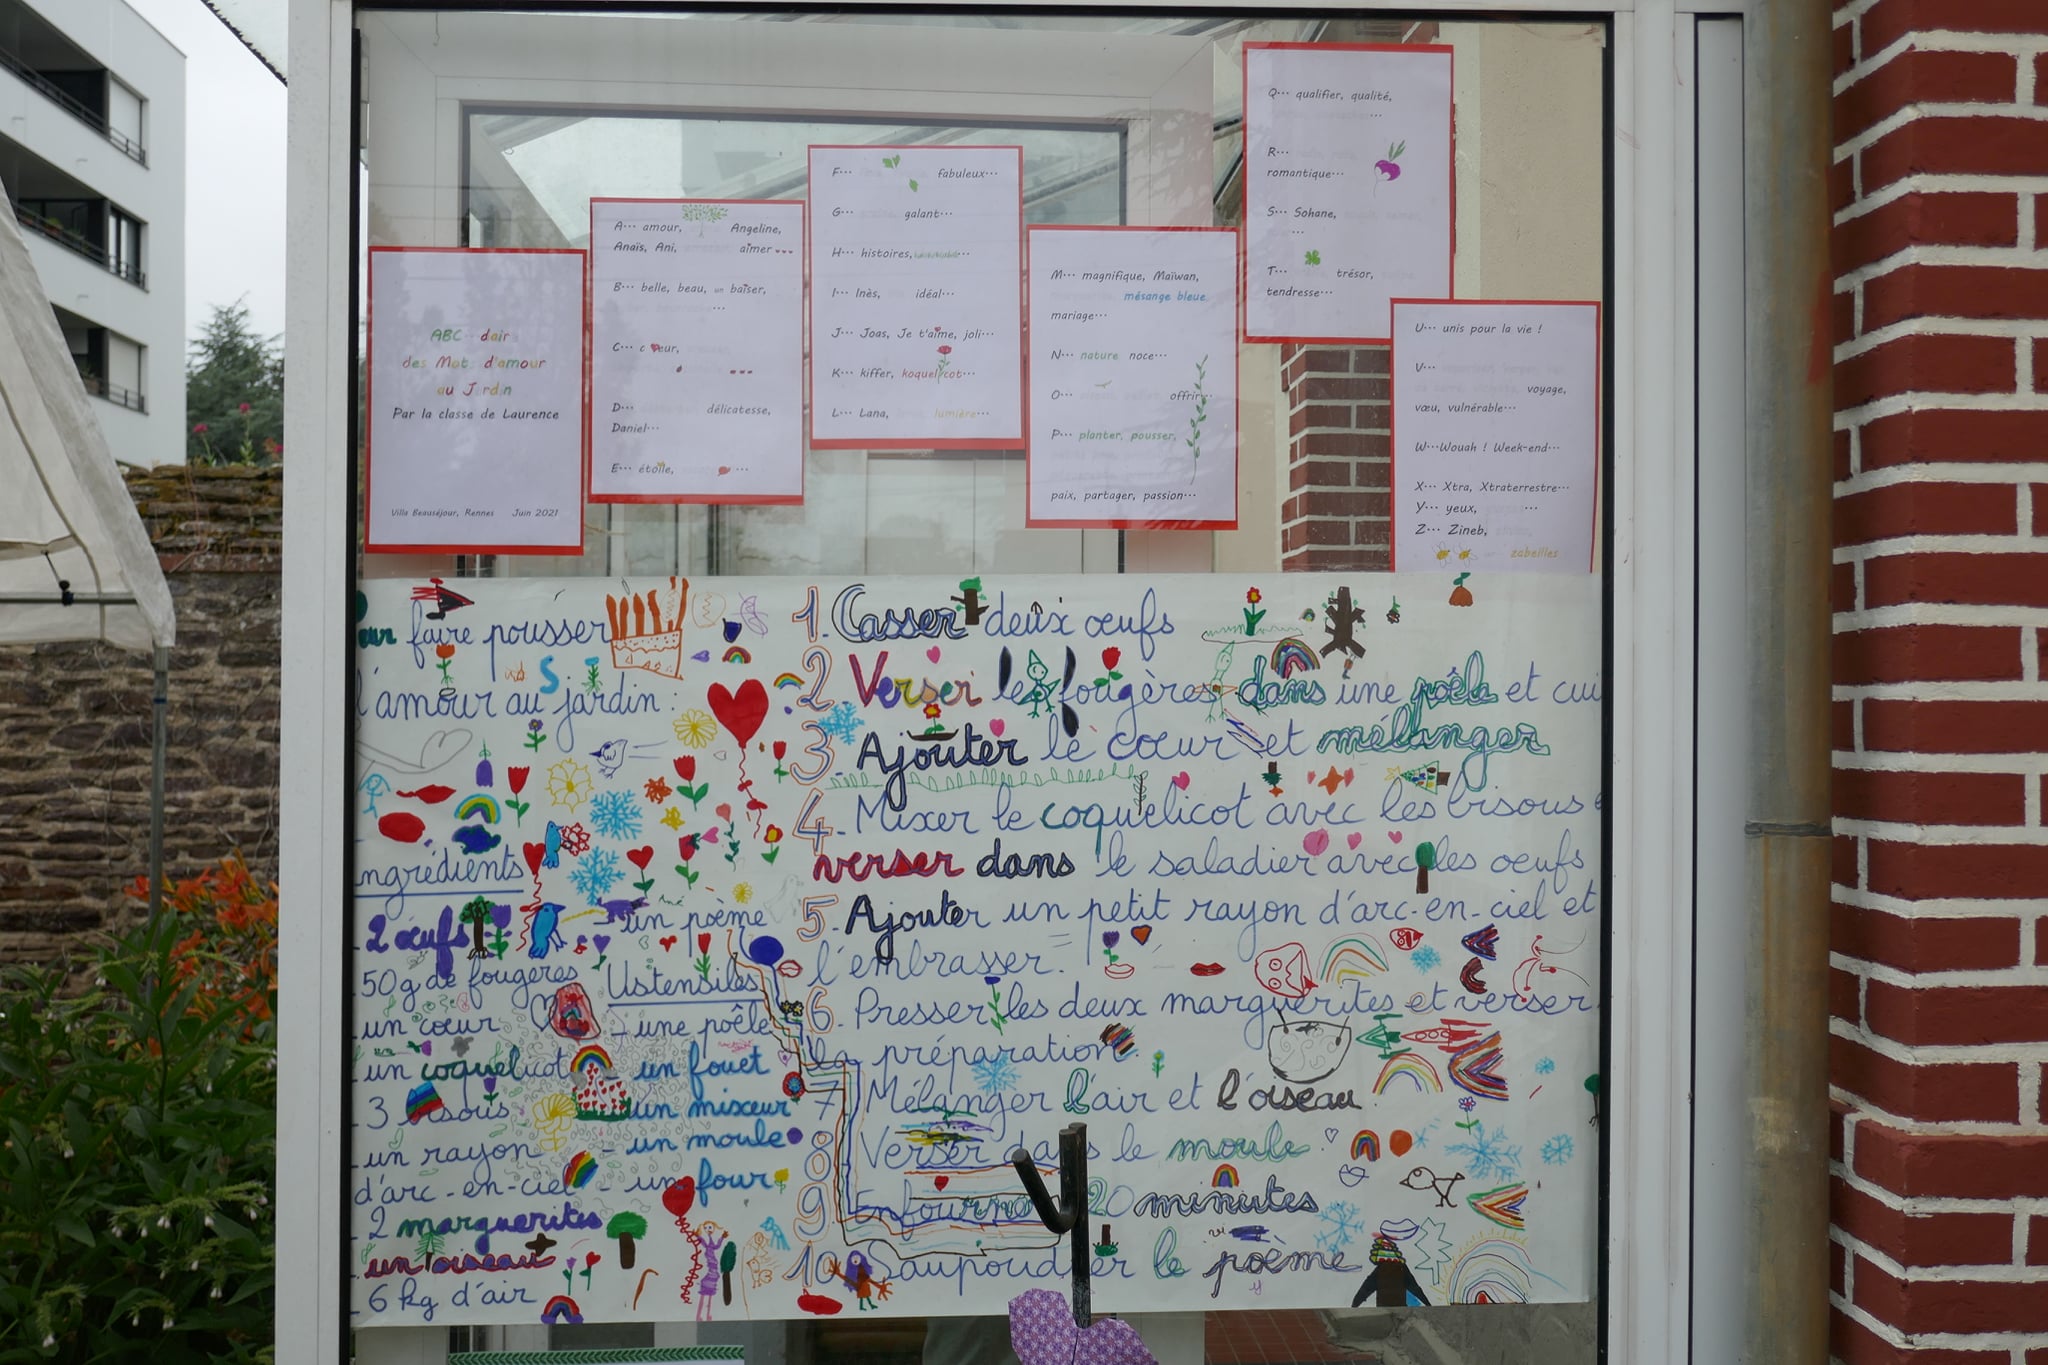 ABC dair
des Mots d'amour
au Jardin
Par la classe de Laurence
Villa Beauséjour, Rennes Juin 2021
A... amour, Angeline,
Anaïs, Ani, aimer
B... belle, beau, un baiser,
...
C... cœur,
D... délicatesse,
Daniel...
E... étoile, ...
F... fabuleux...
G... galant...
H... histoires, ...
I... Inès, idéal...
J... Joas, Je t'aime, joli...
K... kiffer, koquelicot...
L... Lana, lumière...
M... magnifique, Maïwan,
mésange bleue
mariage...
N... nature noce...
O... offrir...
P... planter, pousser,
paix, partager, passion...
Q... qualifier, qualité,
...
R...
romantique...
S... Sohane,
...
T... trésor,
tendresse...
U... unis pour la vie !
V... voyage,
vœu, vulnérable...
W...Wouah ! Week-end...
X... Xtra, Xtraterrestre...
Y... yeux, ...
Z... Zineb,
zabeilles
faire pousser
l'amour au jardin :
ngrédients
- 2 œufs
- 50g de fougères
- un cœur
- un coquelicot
- 3 bisous
- un rayon
d'arc-en-ciel
- 2 marguerites
- un oiseau
- 6 kg d'air
- un poème
Ustensiles
- une poêle
- un fouet
- un mixeur
- un moule
- un four
1. Casser deux œufs
2 Verser les fougères dans une poêle et cui
3. Ajouter le cœur et mélanger
4. Mixer le coquelicot avec les bisous
verser dans le saladier avec les œufs
5. Ajouter un petit rayon d'arc-en-ciel et
l'embrasser.
6. Presser les deux marguerites et verser
la préparation.
7. Mélanger l'air et l'oiseau.
8 Verser dans le moule.
9 Enfourner 20 minutes
10 Saupoudrer le poème